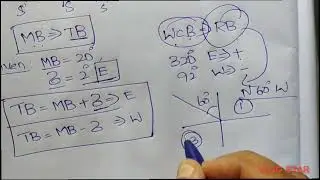 S S S
MB ⇒ TB
MB = 20°
δ = 2° E
TB = MB + δ ⇒ E
TB = MB - δ ⇒ W
WCB = RB
320° E ⇒ +
92° W ⇒ -
N 60° W
60°
①